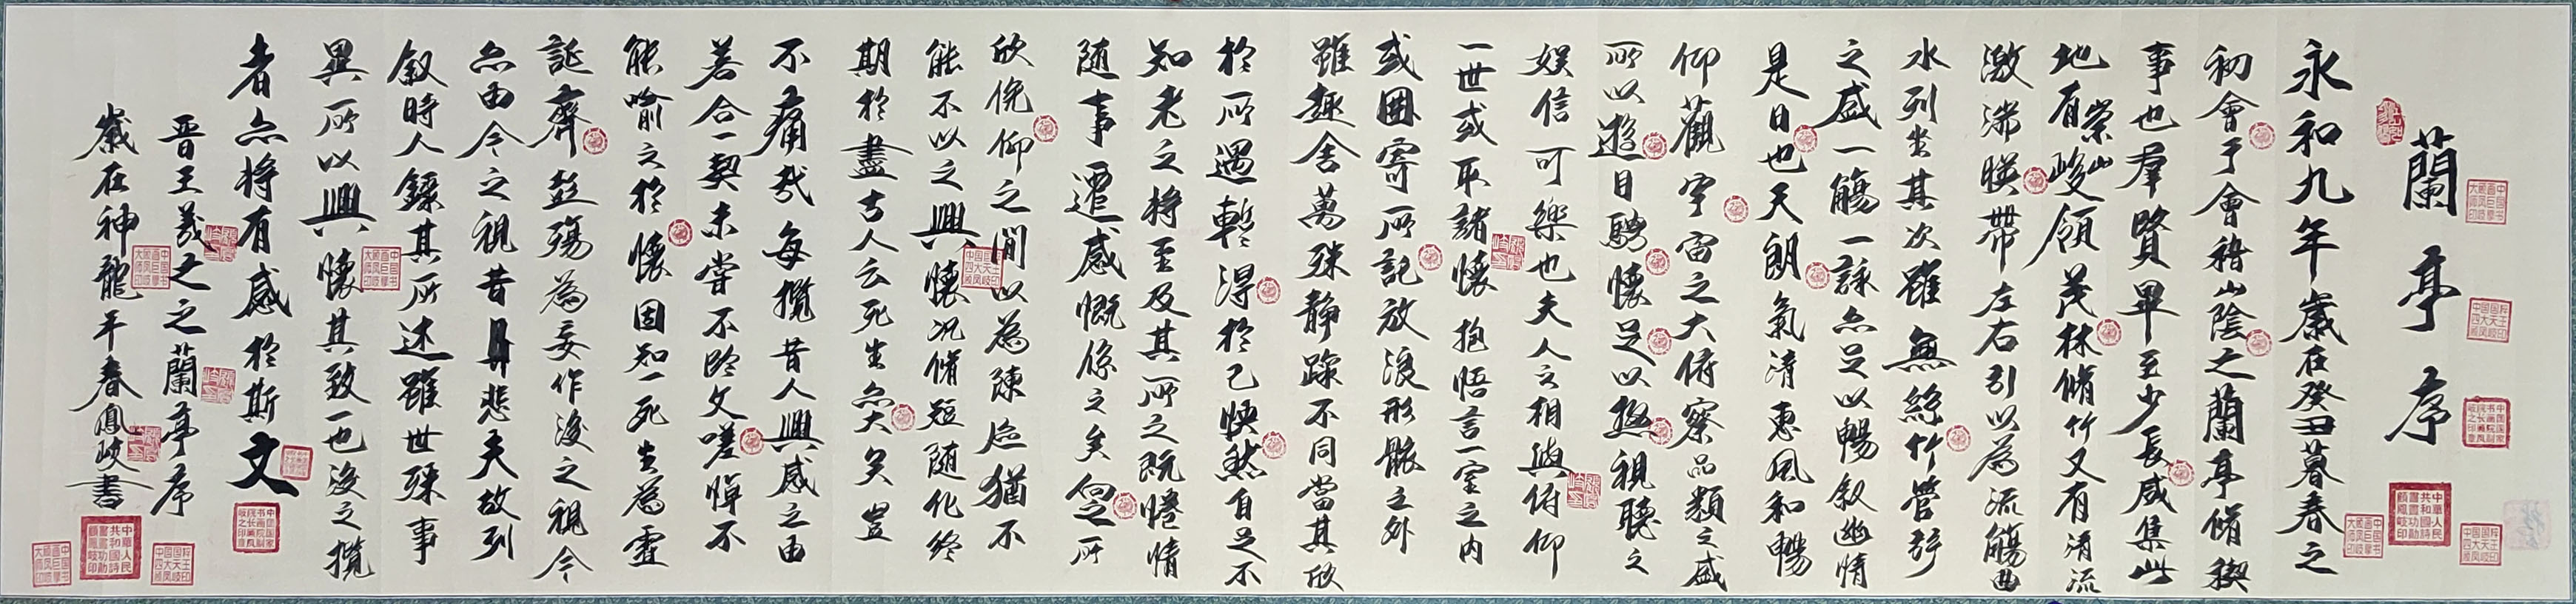 蘭亭序
永和九年歲在癸丑暮春之
初會于會稽山陰之蘭亭脩稧
事也羣賢畢至少長咸集此
地有崇山峻領茂林脩竹又有清流
激湍暎帶左右引以為流觴曲
水列坐其次雖無絲竹管弦
之盛一觴一詠亦足以暢叙幽情
是日也天朗氣清惠風和暢
仰觀宇宙之大俯察品類之盛
所以遊目騁懷足以極視聽之
娛信可樂也夫人之相與俯仰
一世或取諸懷抱悟言一室之内
或因寄所託放浪形骸之外
雖趣舍萬殊静躁不同當其欣
於所遇暫得於己怏然自足不
知老之將至及其所之既惓情
随事遷感慨係之矣向之所
欣俛仰之閒以為陳迹猶不
能不以之興懷况脩短随化終
期於盡古人云死生亦大矣豈
不痛哉每攬昔人興感之由
若合一契未嘗不臨文嗟悼不
能喻之於懷固知一死生為虛
誕齊彭殤為妄作後之視今
亦由今之視昔悲夫故列
叙時人録其所述雖世殊事
異所以興懷其致一也後之攬
者亦將有感於斯文
晋王羲之之蘭亭序
歲在神龍年春鳳岐書
中華人民
共和國詩
書畫功勛
顧鳳岐印